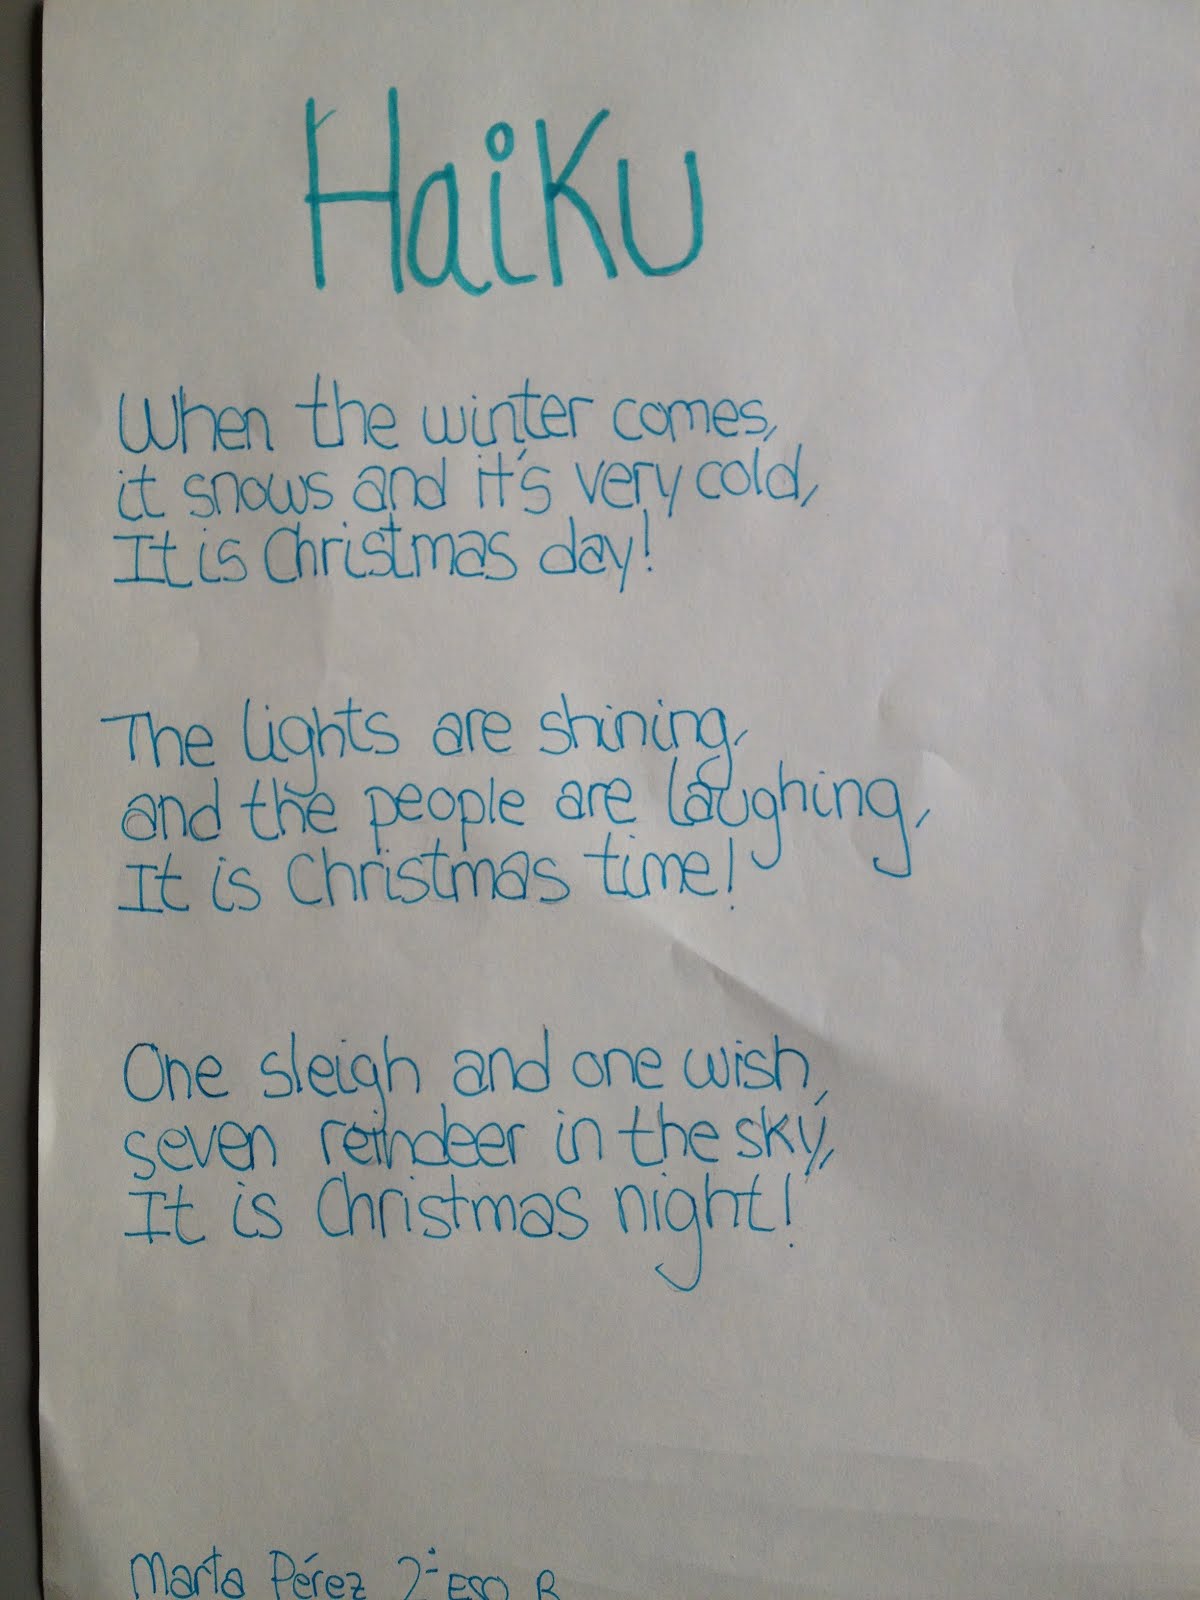 Haiku
When the winter comes,
it snows and it's very cold,
It is Christmas day!
The lights are shining,
and the people are laughing,
It is Christmas time!
One sleigh and one wish,
seven reindeer in the sky,
It is Christmas night!
Marta Pérez 2º ESO B